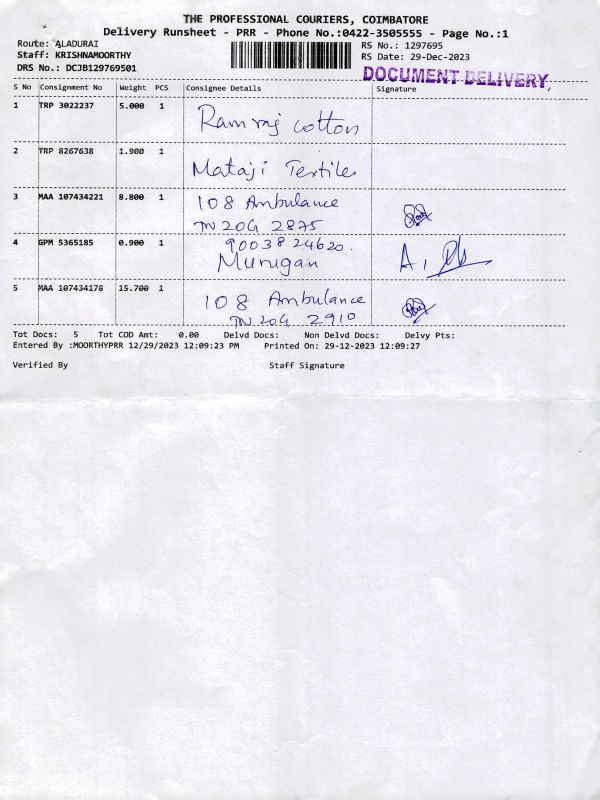 THE PROFESSIONAL COURIERS, COIMBATORE
Delivery Runsheet - PRR - Phone No.:0422-3505555 - Page No.:1
Route: ALADURAI
Staff: KRISHNAMOORTHY
DRS No.: DCJB129769501
RS No.: 1297695
RS Date: 29-Dec-2023
DOCUMENT DELIVERY,
S No Consignment No Weight PCS Consignee Details Signature
1 TRP 3022237 5.000 1 Ramraj cotton
2 TRP 8267638 1.900 1 Mataji Textiles
3 MAA 107434221 8.800 1 108 Ambulance
TN 20G 2875
4 GPM 5365185 0.900 1 9003824620.
Murugan
5 MAA 107434178 15.700 1 108 Ambulance
TN 20G 2910
Tot Docs: 5 Tot COD Amt: 0.00 Delvd Docs: Non Delvd Docs: Delvy Pts:
Entered By :MOORTHYPRR 12/29/2023 12:09:23 PM Printed On: 29-12-2023 12:09:27
Verified By Staff Signature